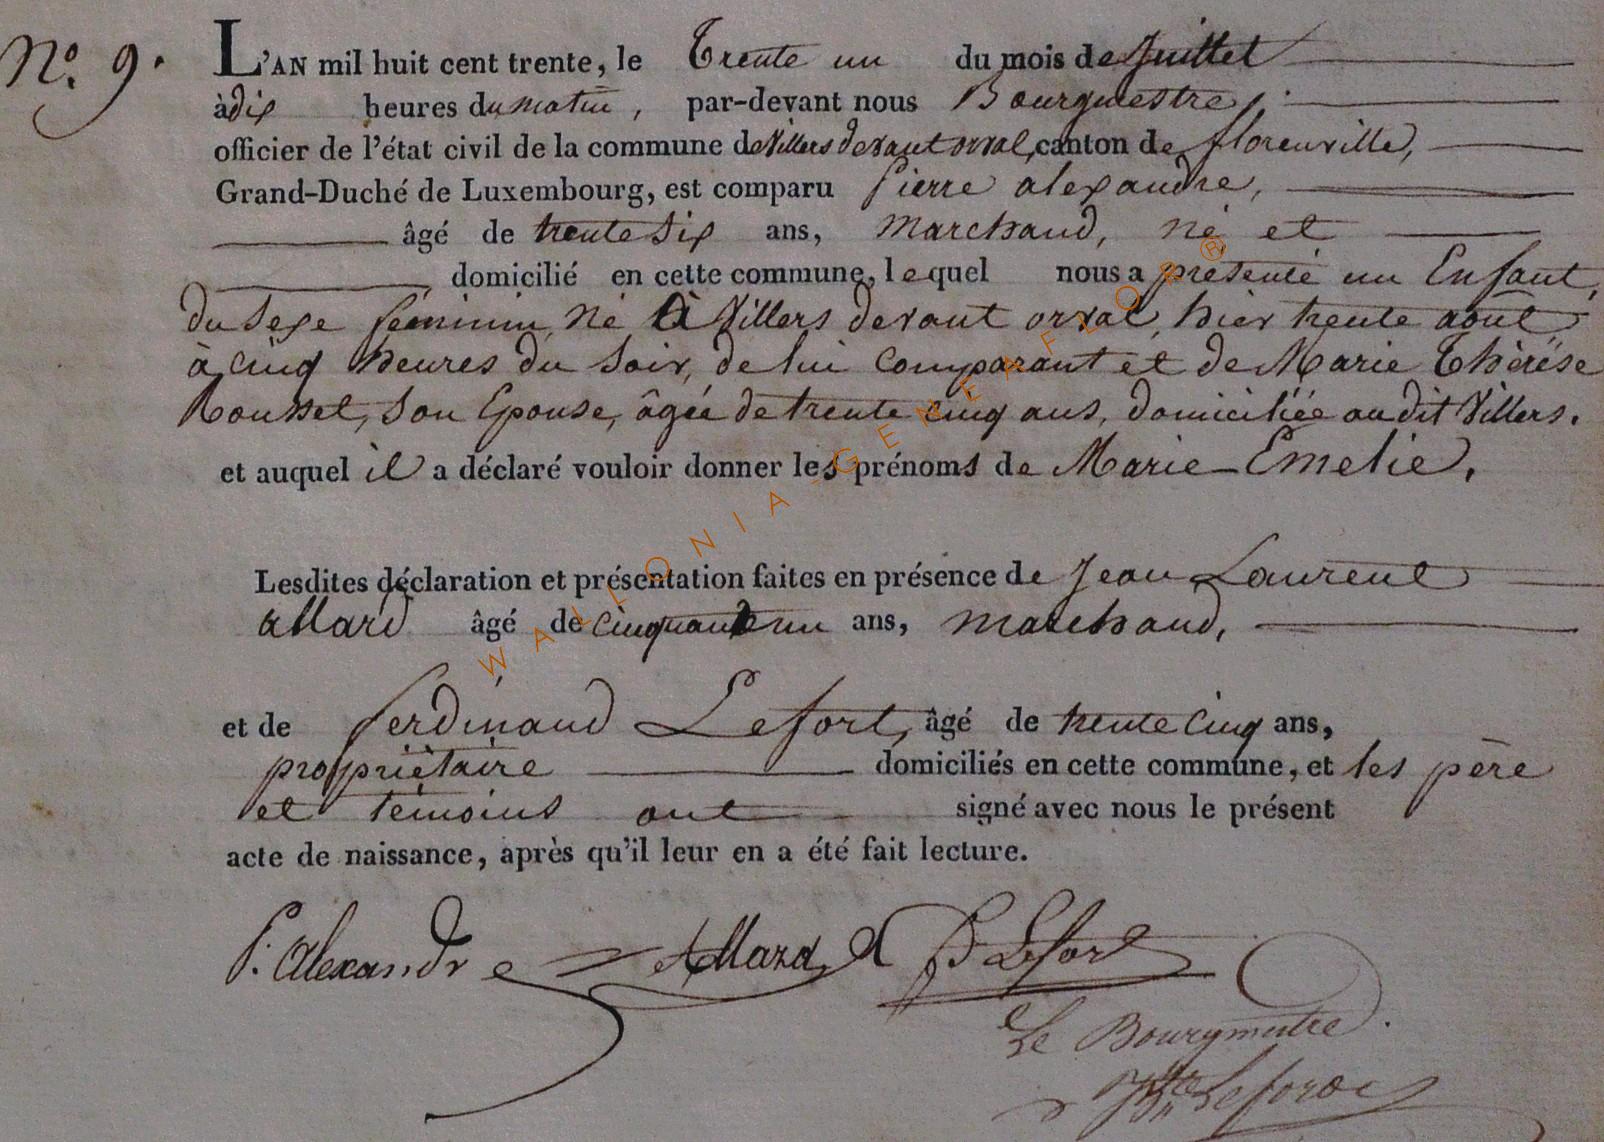 No. 9.
L'AN mil huit cent trente, le Trente un du mois de Juillet
à dix heures du matin, par-devant nous Bourgmestre,
officier de l'état civil de la commune de Villers devant orval, canton de florenville,
Grand-Duché de Luxembourg, est comparu Pierre alexandre,
âgé de trente six ans, Marchand, né et
domicilié en cette commune, lequel nous a présenté un Enfant,
du sexe féminin, né à Villers devant orval, hier trente août
à cinq heures du soir, de lui comparant et de Marie Thérèse
Rousset, son Epouse, âgée de trente cinq ans, domiciliée au dit Villers.
et auquel il a déclaré vouloir donner les prénoms de Marie-Emelie.
Lesdites déclaration et présentation faites en présence de Jean Laurent
allard âgé de cinquante un ans, marchand,
et de ferdinand Lefort, âgé de trente cinq ans,
propriètaire domiciliés en cette commune, et les père
et témoins ont signé avec nous le présent
acte de naissance, après qu'il leur en a été fait lecture.
P. Alexandre Allard Lefort
Le Bourgmestre.
WALLONIA-GENEAFLOR®